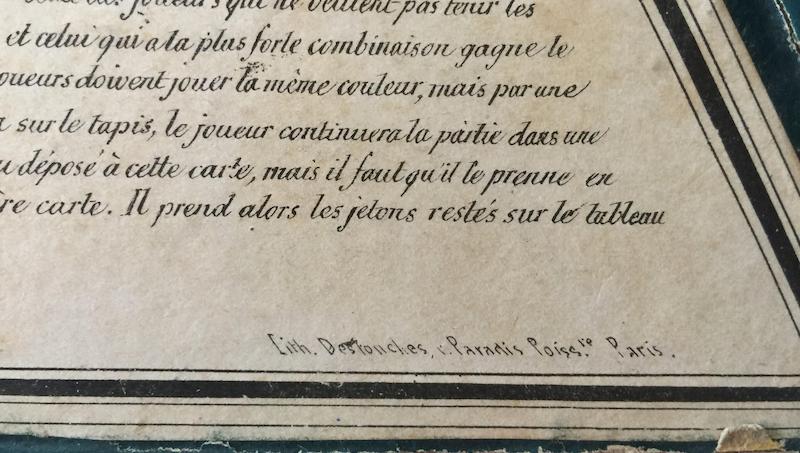 joueurs qui ne veulent pas tenir les
et celui qui a la plus forte combinaison gagne le
joueurs doivent jouer la même couleur, mais par une
sur le tapis, le joueur continuera la partie dans une
déposé à cette carte, mais il faut qu'il le prenne en
carte. Il prend alors les jetons restés sur le tableau
Lith. Destouches, r. Paradis Poiss.re Paris.